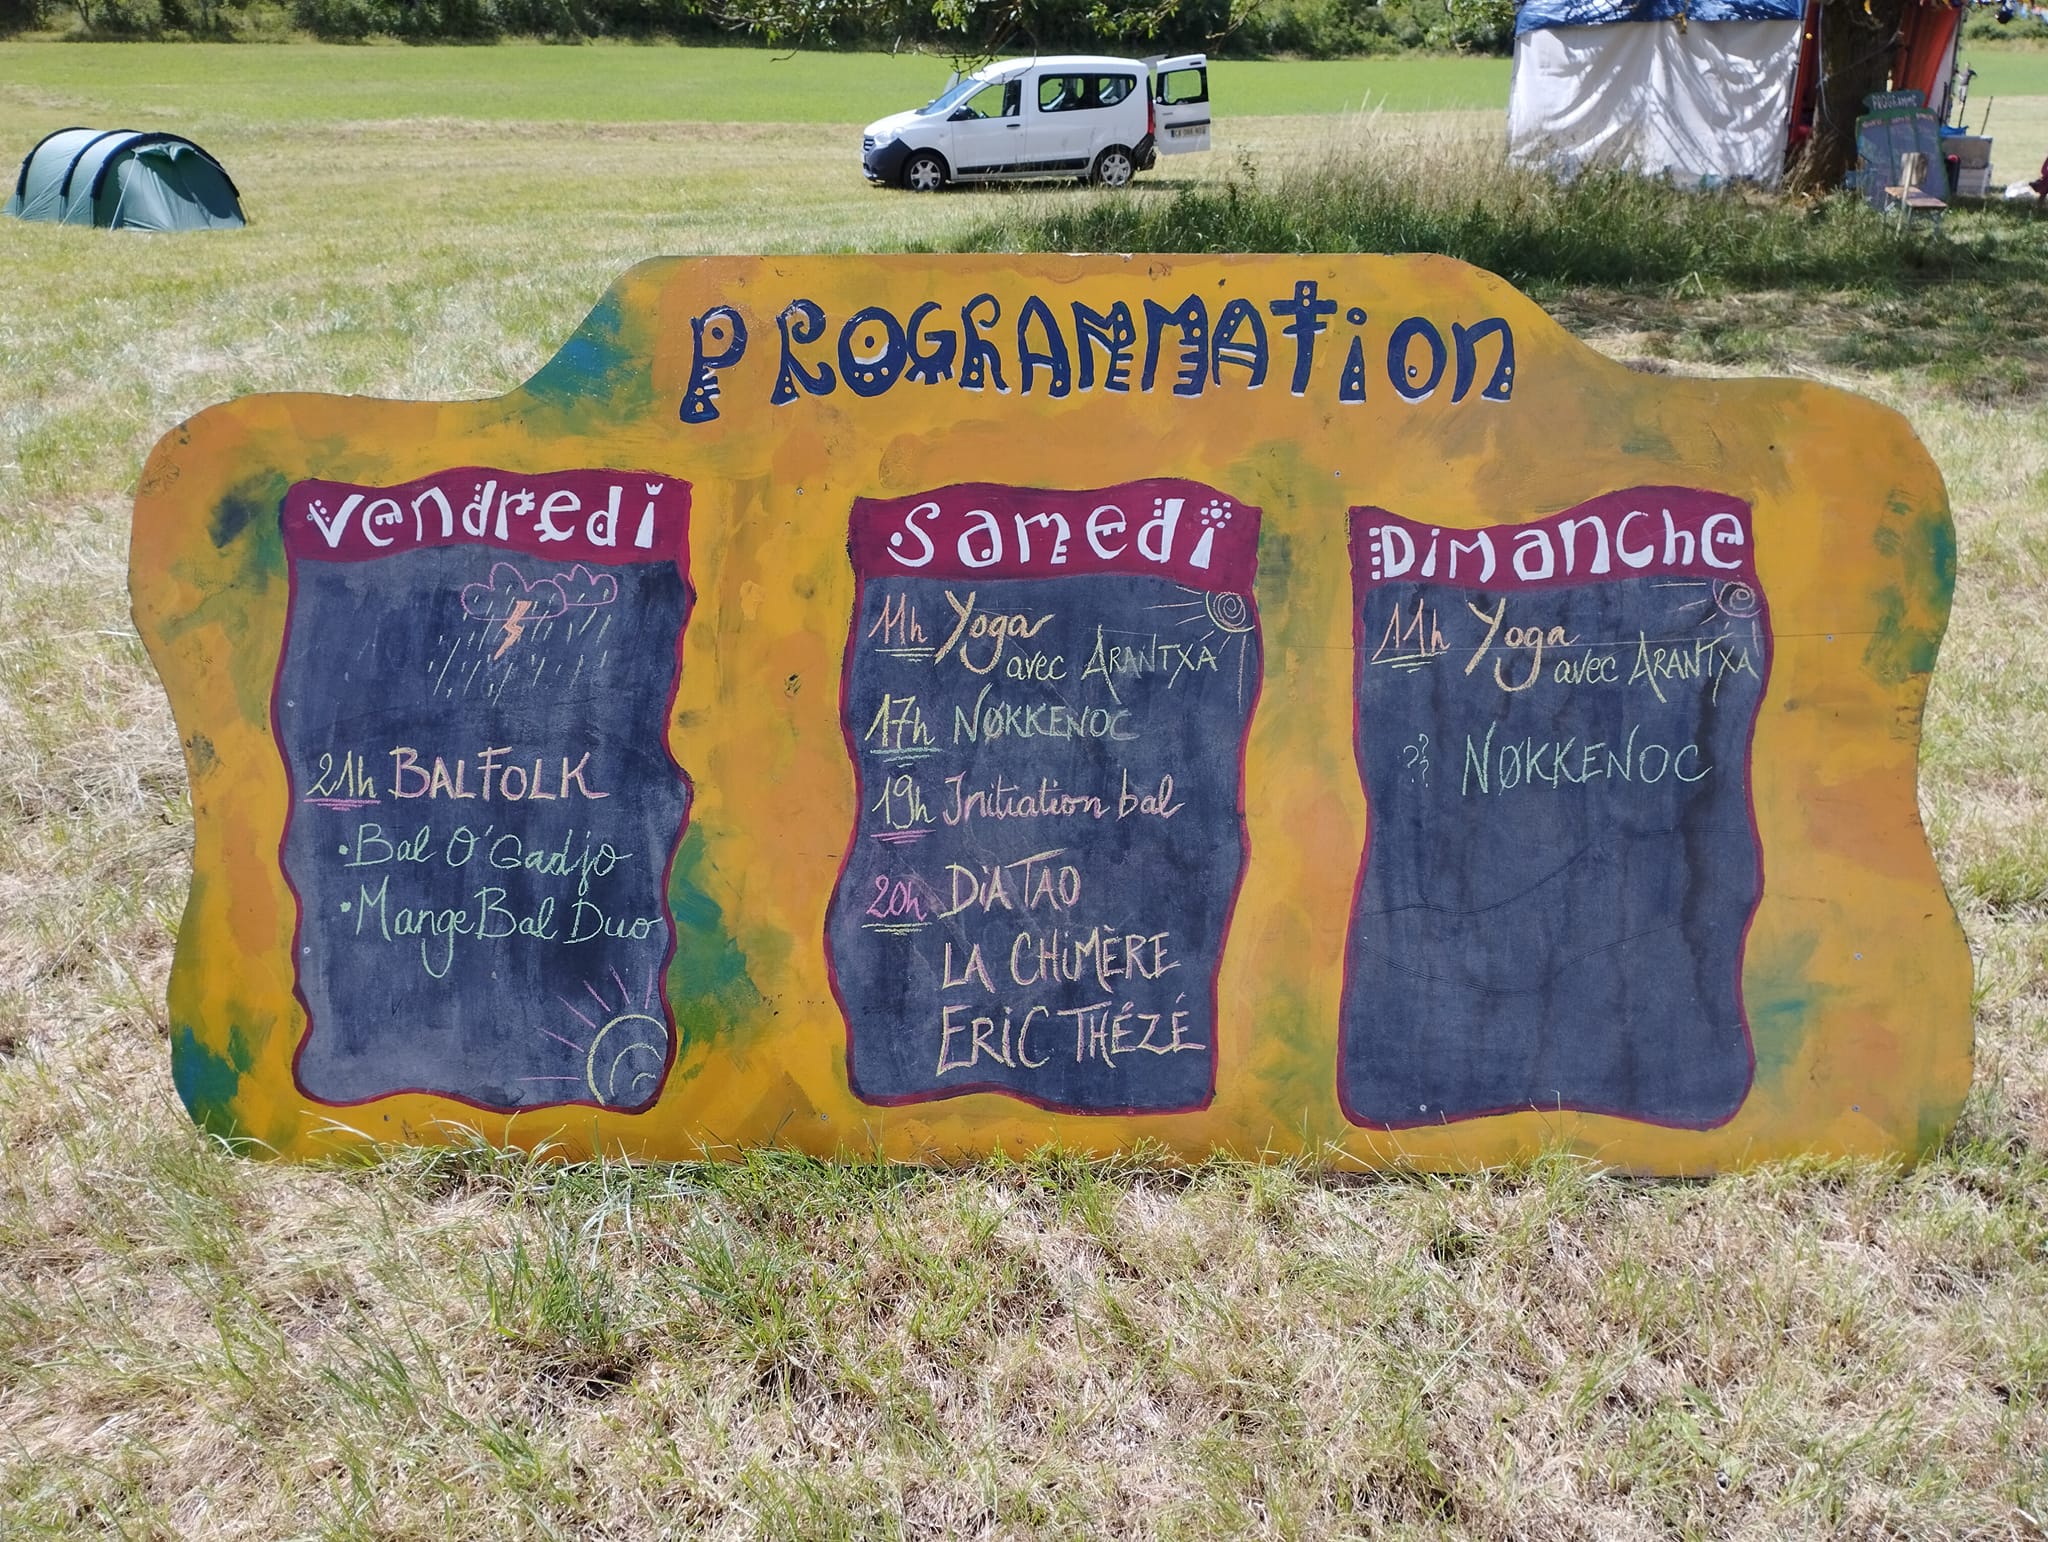 PROGRAMME
PROGRAMMATION
Vendredi
21h BALFOLK
• Bal O'Gadjo
• MangeBal Duo
Samedi
11h Yoga
avec ARANTXÁ
17h NØKKENOC
19h Initiation bal
20h DiATAO
LA CHiMÈRE
ERiC THÉZÉ
Dimanche
11h Yoga
avec ARANTXÁ
??? NØKKENOC